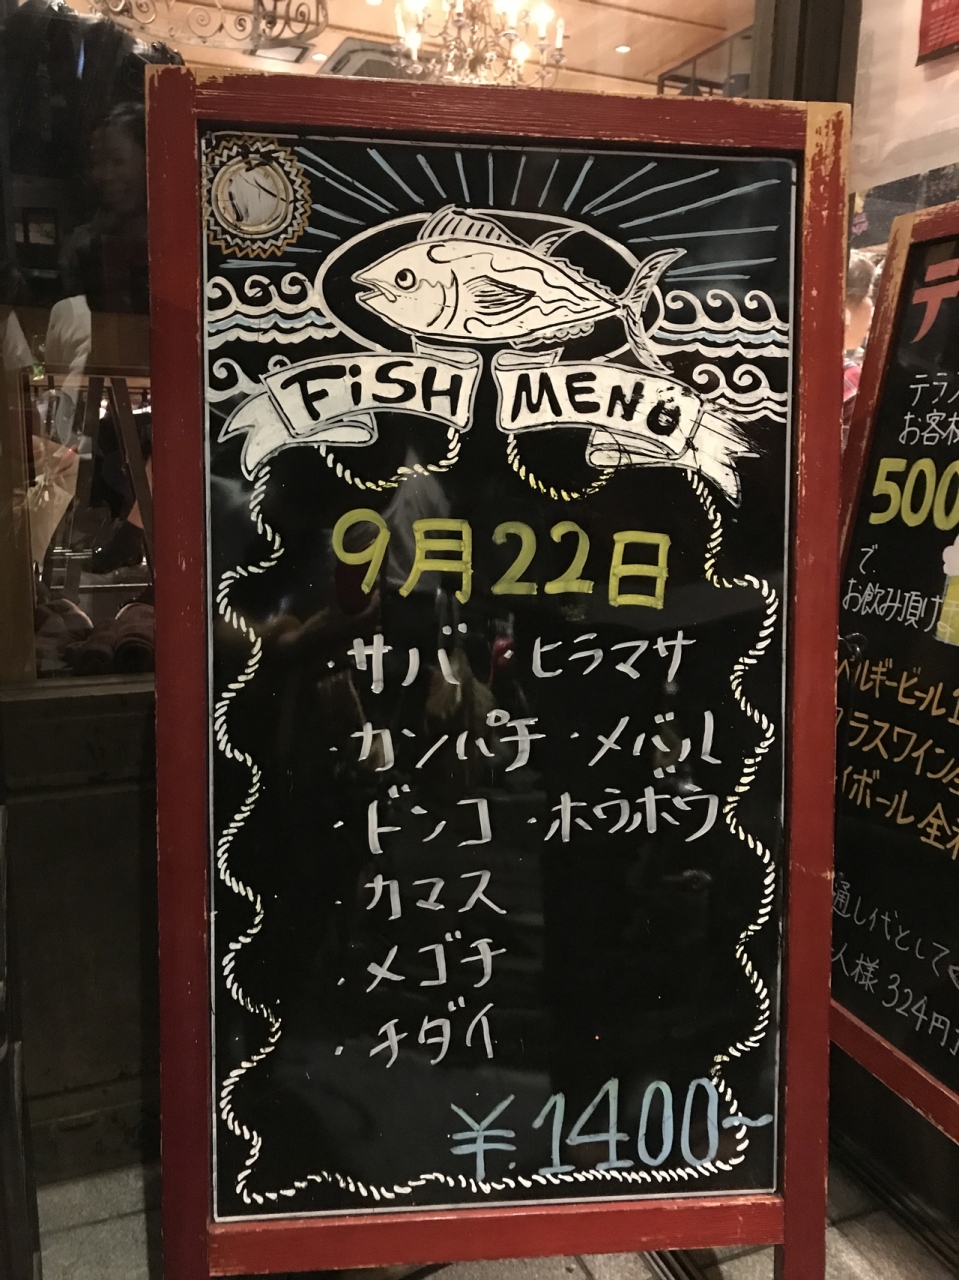 FiSH MENU
9月22日
・サバ ・ヒラマサ
・カンパチ ・メバル
・ドンコ ・ホウボウ
・カマス
・メゴチ
・チダイ
¥1400~
テ
テラス
お客様
500
で、
お飲み頂けま
ベルギービール
ラスワイン
イボール 全
通し代として
人様 324円